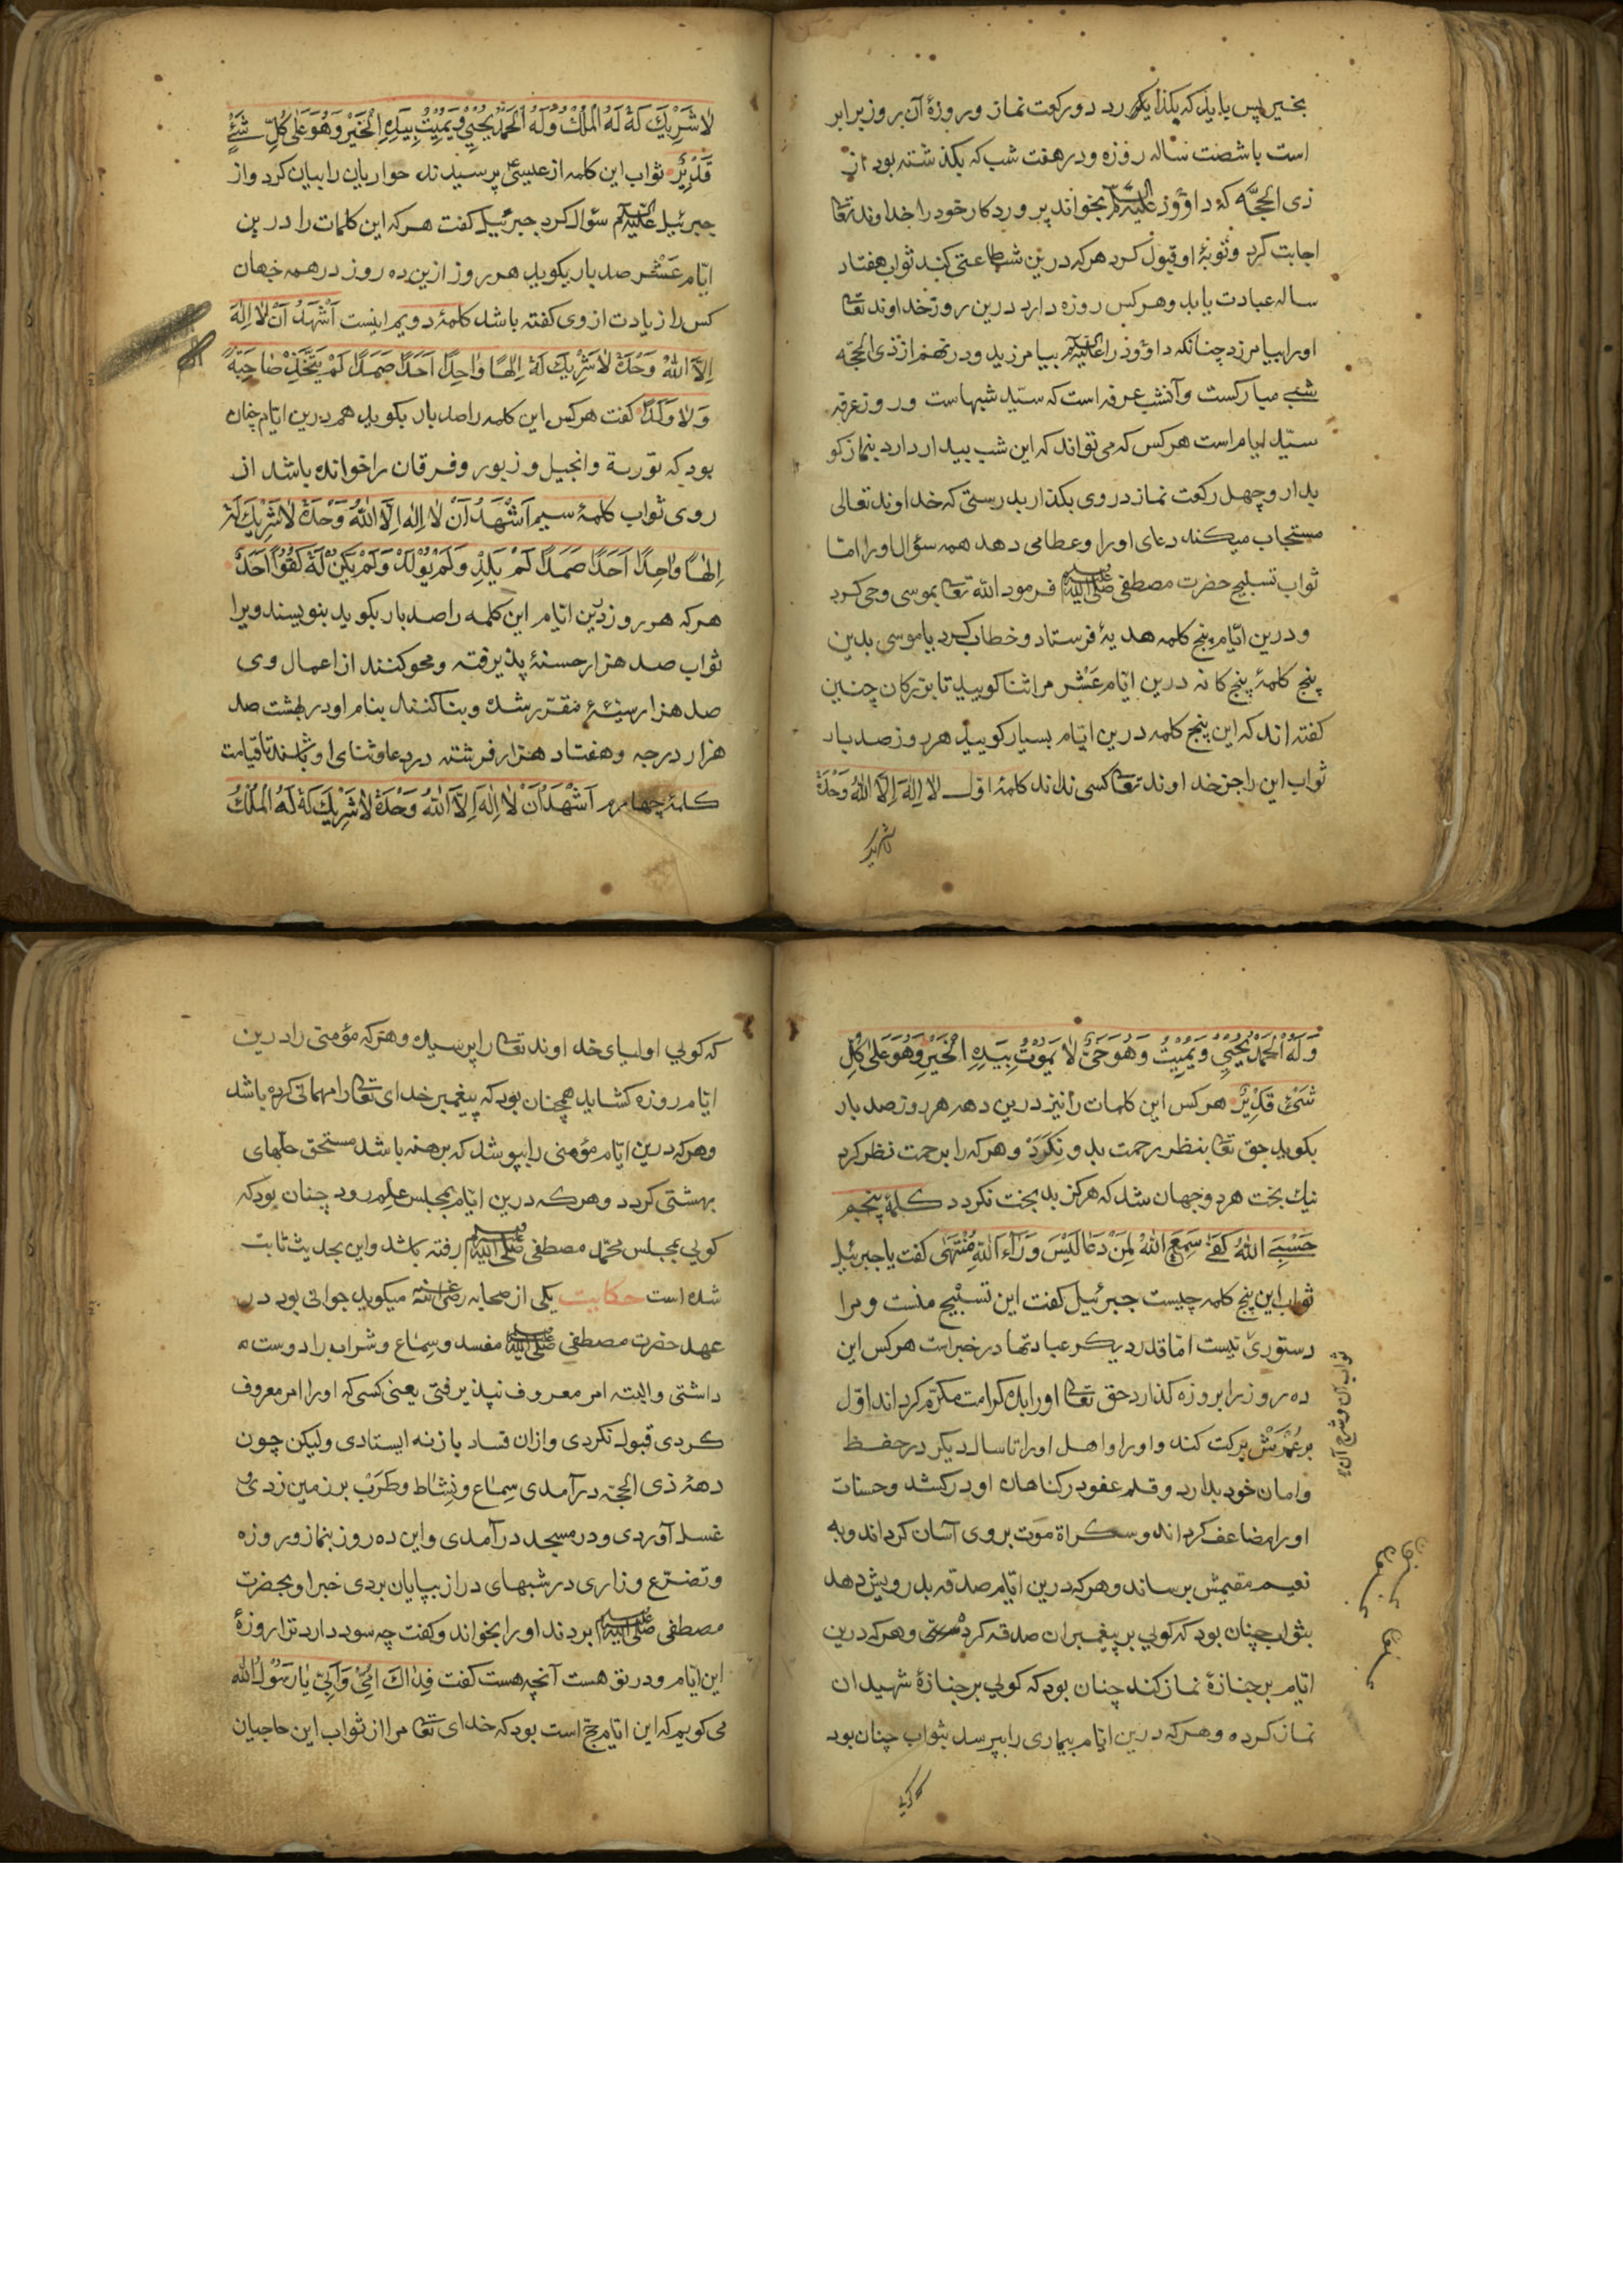 بخیر پس باید که بکذارد دو رکعت نماز و روزهٔ آن بروز برابر
است با شصت ساله روزه و در هفت شب که بکذشته بود از
ذی الحجّه که داوٗود علیه السلام بخواند پروردکار خود را خداوند تعا
اجابت کرد و توبهٔ او قبول کرد هر که درین شب طاعتی کند ثواب هفتاد
ساله عبادت یابد و هر کس روزه دارد درین روز خداوند تعا
اورا بیامرزد چنانکه داوٗود را علیه السلام بیامرزید و در نهم از ذی الحجّه
شبی مبارکست و آنشب عرفه است که سیّد شبهاست و روز عرفه
سیّد ایام است هر کس که می تواند که این شب بیدار دارد بنماز کو
بدار و چهل رکعت نماز در وی بکذار بدرستی که خداوند تعالی
مستجاب میکند دعای اورا و عطا می دهد همه سؤال اورا امّا
ثواب تسبیح حضرت مصطفی صلی الله علیه وسلم فرمود الله تعا بموسی وحی کرد
و درین ایّام پنج کلمه هدیهٔ فرستاد و خطاب کرد یا موسی بدین
پنج کلمهٔ پنج کانه درین ایّام عَشْر مرا ثنا کویید تا بزرکان چنین
کفته اند که این پنج کلمه درین ایّام بسیار کویید هر روز صد بار
ثواب این را جز خداوند تعا کسی نداند کلمهٔ اوّل لا اِلٰهَ اِلَّا اللّٰهُ وَحْدَهُ
لا شریک
لَا شَرِيْكَ لَهُ لَهُ الْمُلْكُ وَلَهُ الْحَمْدُ يُحْيِيْ وَيُمِيْتُ بِيَدِهِ الْخَيْرُ وَهُوَ عَلٰى كُلِّ شَيْءٍ
قَدِيْرٌ ثواب این کلمه از عیسی پرسیدند حواریان را بیان کرد و از
جبرئیل علیه السلام سؤال کرد جبرئیل کفت هر که این کلمات را درین
ایّام عَشْر صد بار بکوید هر روز ازین ده روز در همه جهان
کس را زیادت از وی کفته باشد کلمهٔ دویم اینست اَشْهَدُ اَنْ لَا اِلٰهَ
اِلَّا اللّٰهُ وَحْدَهُ لَا شَرِيْكَ لَهُ اِلٰهًا وَاحِدًا اَحَدًا صَمَدًا لَمْ يَتَّخِذْ صَاحِبَةً
وَلَا وَلَدًا کفت هر کس این کلمه را صد بار بکوید هم درین ایّام چنان
بود که توریة و انجیل و زبور و فرقان را خوانده باشد از
روی ثواب کلمهٔ سیم اَشْهَدُ اَنْ لَا اِلٰهَ اِلَّا اللّٰهُ وَحْدَهُ لَا شَرِيْكَ لَهُ
اِلٰهًا وَاحِدًا اَحَدًا صَمَدًا لَمْ يَلِدْ وَلَمْ يُوْلَدْ وَلَمْ يَكُنْ لَهُ كُفُوًا اَحَدٌ
هر که هر روز درین ایّام این کلمه را صد بار بکوید بنویسند ویرا
ثواب صد هزار حسنهٔ پذیرفته و محو کنند از اعمال وی
صد هزار سیّئهٔ مقرّر شده و بنا کنند بنام او در بهشت صد
هزار درجه و هفتاد هزار فرشته در دعا و ثنای او باشند تا قیامت
کلمهٔ چهارم اَشْهَدُ اَنْ لَا اِلٰهَ اِلَّا اللّٰهُ وَحْدَهُ لَا شَرِيْكَ لَهُ لَهُ الْمُلْكُ
وَلَهُ الْحَمْدُ يُحْيِيْ وَيُمِيْتُ وَهُوَ حَيٌّ لَا يَمُوْتُ بِيَدِهِ الْخَيْرُ وَهُوَ عَلٰى كُلِّ
شَيْءٍ قَدِيْرٌ هر کس این کلمات را نیز درین دهه هر روز صد بار
بکوید حق تعا بنظر رحمت بدو نکرد و هر که را برحمت نظر کرد
نیك بخت هر دو جهان شد که هرکز بد بخت نکردد کلمهٔ پنجم
حَسْبِيَ اللّٰهُ كَفٰى سَمِعَ اللّٰهُ لِمَنْ دَعَا لَيْسَ وَرَاءَ اللّٰهِ مُنْتَهٰى کفت یا جبرئیل
ثواب این پنج کلمه چیست جبرئیل کفت این تسبیح منست و مرا
دستوری نیست امّا قدر دیکر عبادتها در خبر است هر کس این
ده روز را بروزه کذارد حق تعا اورا بده کرامت مکرّم کرداند اوّل
بر عُمْرَشْ برکت کند و اورا و اهل اورا تا سال دیکر در حفظ
و امان خود بدارد و قلم عفو در کناهان او درکشد و حسنات
اورا مضاعف کرداند و سکراة موت بر وی آسان کرداند و به
نعیم مقیمش برساند و هر که درین ایّام صدقه بدرویش دهد
بثواب چنان بود که کویی بر پیغمبران صدقه کرد و هر که درین
ایّام بر جنازهٔ نماز کند چنان بود که کویی بر جنازهٔ شهیدان
نماز کرده و هر که درین ایّام بیماری را بپرسد بثواب چنان بود
که کویی
ثواب آن و شرح آن
که کویی اولیای خداوند تعا را پرسیده و هر که مؤمنی را درین
ایّام روزه کشاید همچنان بود که پیغمبر خدای تعا را مهمانی کرده باشد
و هر که درین ایّام مؤمنی را بپوشد که برهنه باشد مستحق حلّهای
بهشتی کردد و هر که درین ایّام بمجلس علم رود چنان بود که
کویی بمجلس محمّد مصطفی صلی الله علیه وسلم رفته باشد و این بحدیث ثابت
شده است حکایت یکی از صحابه رضی الله عنه میکوید جوانی بود در
عهد حضرت مصطفی صلی الله علیه وسلم مفسد و سِماع و شراب را دوست
داشتی و البته امر معروف نپذیرفتی یعنی کسی که اورا امر معروف
کردی قبول نکردی و ازان فساد باز نه ایستادی ولیکن چون
دههٔ ذی الحجّه درآمدی سِمَاع و نِشَاط و طَرَبْ بر زمین زدی و
غسل آوردی و در مسجد درآمدی و این ده روز بنماز و روزه
و تضرّع و زاری در شبهای دراز بپایان بردی خبر او بحضرت
مصطفی صلی الله علیه وسلم بردند اورا بخواند و کفت چه سود دارد ترا روزهٔ
این ایّام و در تو هست آنچه هست کفت فِدَاكَ اُمِّيْ وَاَبِيْ يَا رَسُوْلَ اللّٰه
می کویم که این ایّام حجّ است بود که خدای تعا مرا از ثواب این حاجیان